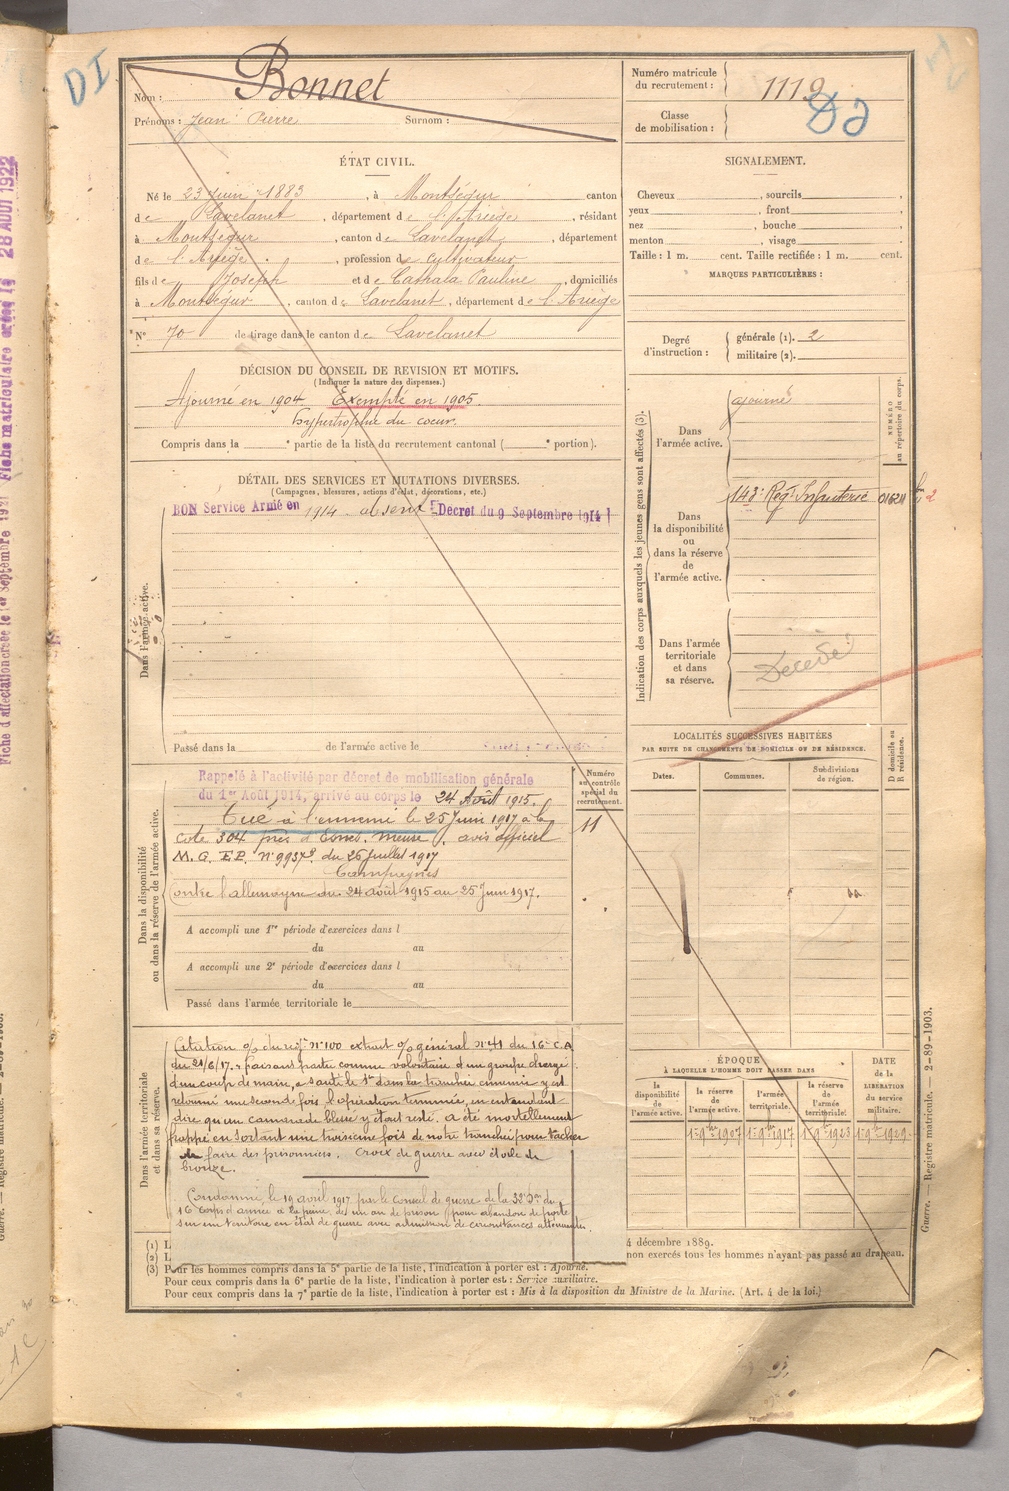 DI
Nom : Bonnet
Prénoms : Jean Pierre Surnom :
Numéro matricule du recrutement : 1119
Classe de mobilisation :
ÉTAT CIVIL.
Né le 23 Juin 1883, à Montségur canton
de Lavelanet, département de l'Ariège, résidant
à Montségur, canton de Lavelanet, département
de l'Ariège, profession de Cultivateur
fils de Joseph et de Cathala Pauline, domiciliés
à Montségur, canton de Lavelanet, département de l'Ariège
N° 70 de tirage dans le canton de Lavelanet
DÉCISION DU CONSEIL DE REVISION ET MOTIFS.
(Indiquer la nature des dispenses.)
Ajourné en 1904. Exempté en 1905.
hypertrophie du coeur.
Compris dans la ° partie de la liste du recrutement cantonal ( ° portion).
DÉTAIL DES SERVICES ET MUTATIONS DIVERSES.
(Campagnes, blessures, actions d'éclat, décorations, etc.)
BON Service Armé en 1914 absent Decret du 9 Septembre 1914
Dans l'armée active.
Passé dans la de l'armée active le
Dans la disponibilité
ou dans la réserve de l'armée active.
Rappelé à l'activité par décret de mobilisation générale
du 1er Août 1914, arrivé au corps le 24 Août 1915.
Tué à l'ennemi le 25 Juin 1917 à la
cote 304 près d'Esnes. Meuse, avis officiel
du 26 Juillet 1917
Campagnes
Contre l'allemagne du 24 août 1915 au 25 Juin 1917.
A accompli une 1re période d'exercices dans l
du au
A accompli une 2e période d'exercices dans l
du au
Passé dans l'armée territoriale le
Numéro
au contrôle
spécial du
recrutement.
11
Dans l'armée territoriale
et dans sa réserve.
Citation o/ du régt n° 100 extrait o/ général n° 41 du 16e C.A
du 21/6/17. faisant partie comme volontaire d'un groupe chargé
d'un coup de main, a sauté le 1er dans la tranchée ennemie y est
retourné une seconde fois, l'opération terminée, en entendant
dire qu'un camarade blessé y était resté. a été mortellement
frappé en sortant une troisième fois de notre tranchée pour tacher
de faire des prisonniers. Croix de guerre avec étoile de
bronze.
Condamné, le 19 avril 1917 par le Conseil de guerre de la 32e Don du
16e corps d'armée à la peine de un an de prison pour abandon de poste
sur un territoire en état de guerre avec admission de circonstances atténuantes.
(1) L
(2) L
(3) Pour les hommes compris dans la 5e partie de la liste, l'indication à porter est : Ajourné.
Pour ceux compris dans la 6e partie de la liste, l'indication à porter est : Service auxiliaire.
Pour ceux compris dans la 7e partie de la liste, l'indication à porter est : Mis à la disposition du Ministre de la Marine. (Art. 4 de la loi.)
SIGNALEMENT.
Cheveux , sourcils ,
yeux , front ,
nez , bouche ,
menton , visage .
Taille : 1 m. cent. Taille rectifiée : 1 m. cent.
MARQUES PARTICULIÈRES :
Degré d'instruction : générale (1). 2
militaire (2).
Indication des corps auxquels les jeunes gens sont affectés (3).
Dans l'armée active. ajourné
NUMÉRO
au répertoire du corps.
Dans la disponibilité ou dans la réserve de l'armée active. 143e Regt Infanterie
Dans l'armée territoriale et dans sa réserve. Décédé
LOCALITÉS SUCCESSIVES HABITÉES
PAR SUITE DE CHANGEMENTS DE DOMICILE OU DE RÉSIDENCE.
Dates. Communes. Subdivisions de région. D domicile ou R résidence.
ÉPOQUE
À LAQUELLE L'HOMME DOIT PASSER DANS
DATE de la LIBÉRATION du service militaire.
la disponibilité de l'armée active. la réserve de l'armée active. l'armée territoriale. la réserve de l'armée territoriale.
1er 8bre 1907 1er 8bre 1917 1er 8bre 1923 1er 8bre 1929
4 décembre 1889.
non exercés tous les hommes n'ayant pas passé au drapeau.
Guerre. — Registre matricule. — 2-89-1903.
28 AOUT 1922